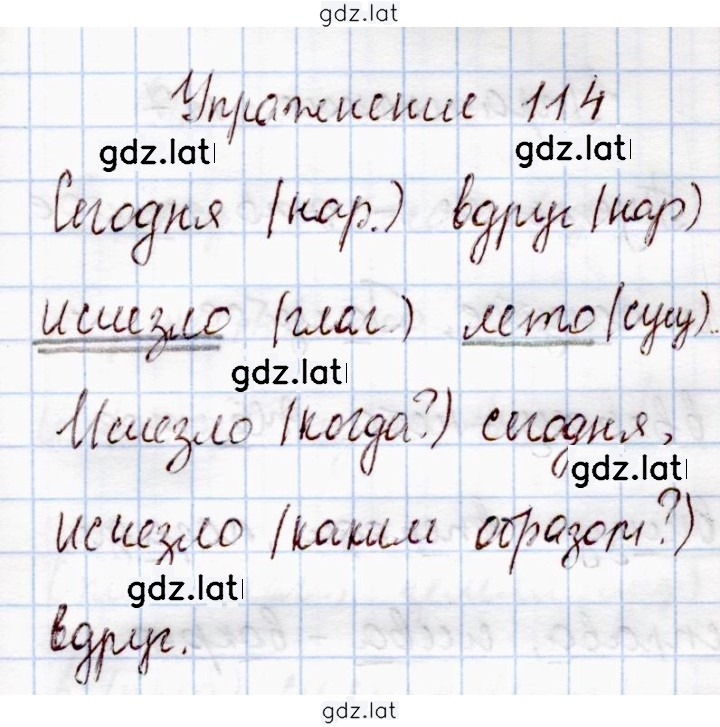 gdz.lat
Упражнение 114
gdz.lat gdz.lat
Сегодня (нар.) вдруг (нар)
исчезло (глаг.) лето (сущ).
gdz.lat
Исчезло (когда?) сегодня,
gdz.lat
исчезло (каким образом?)
gdz.lat
вдруг.
gdz.lat